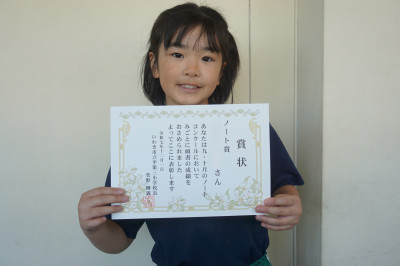 賞状
ノート賞
さん
あなたは九・十月のノート
コンクールにおいて
みごとに頭書の成績を
おさめられました
よってここに表彰します
令和七年十一月一日